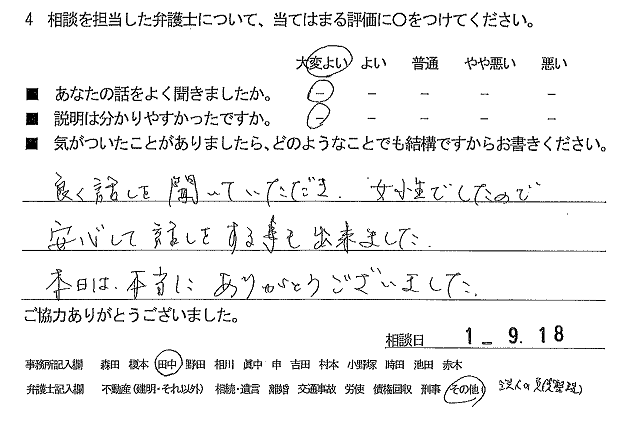 4 相談を担当した弁護士について、当てはまる評価に○をつけてください。
大変よい よい 普通 やや悪い 悪い
■ あなたの話をよく聞きましたか。 － － － － －
■ 説明は分かりやすかったですか。 － － － － －
■ 気がついたことがありましたら、どのようなことでも結構ですからお書きください。
良く話しを聞いていただき、女性でしたので
安心して話しをする事も出来ました.
本日は、本当に ありがとうございました.
ご協力ありがとうございました。
相談日 1－9.18
事務所記入欄 森田 榎本 田中 野田 相川 眞中 申 吉田 村本 小野塚 時田 池田 赤木
弁護士記入欄 不動産（建明・それ以外） 相続・遺言 離婚 交通事故 労使 債権回収 刑事 その他（ 法人の負債整理）